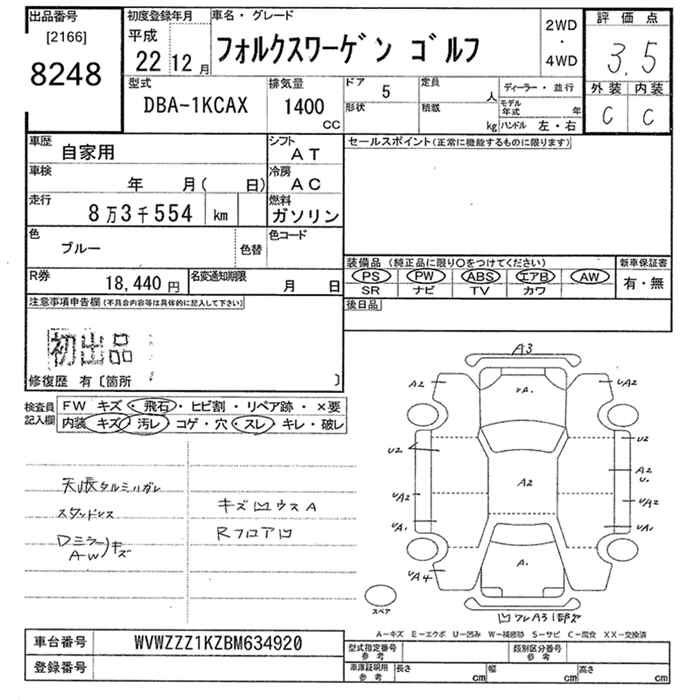 出品番号
[2166]
8248
初度登録年月
平成
22 12 月
車名・グレード
フォルクスワーゲン ゴルフ
2WD
・
4WD
評価点
3.5
外装 内装
C C
型式
DBA-1KCAX
排気量
1400
CC
ドア 5
形状
定員 人
積載 kg
ディーラー・並行
モデル年式 年
ハンドル 左・右
車歴
自家用
シフト
AT
車検
年 月( 日)
冷房
AC
走行
8万3千554 km
燃料
ガソリン
色
ブルー
色替
色コード
R券
18,440 円
名変通知期限
月 日
セールスポイント(正常に機能するものに限ります)
装備品 (純正品に限り○をつけてください)
PS PW ABS エアB AW
SR ナビ TV カワ
新車保証書
有・無
後日品
注意事項申告欄(不具合内容等は具体的に記入して下さい)
初出品
修復歴 有〔箇所 〕
検査員記入欄
FW キズ・飛石・ヒビ割・リペア跡・×要
内装 キズ・汚レ・コゲ・穴・スレ・キレ・破レ
天張タルミハガレ
スタッドレス
Dミラー
AW
キズ
キズ凹ウスA
Rフロア凹
A3
A2
UA2
UA.
U2
U2
A2
U.
A2
UA2
UA2
UA.
UA.
A.
UA4
凹ワレA3 1部欠
スペア
A―キズ E―エクボ U―凹み W―補修跡 S―サビ C―腐食 XX―交換済
車台番号
WVWZZZ1KZBM634920
登録番号
型式指定番号
参考
類別区分番号
参考
車庫証明用
参考
長さ cm
幅 cm
高さ cm